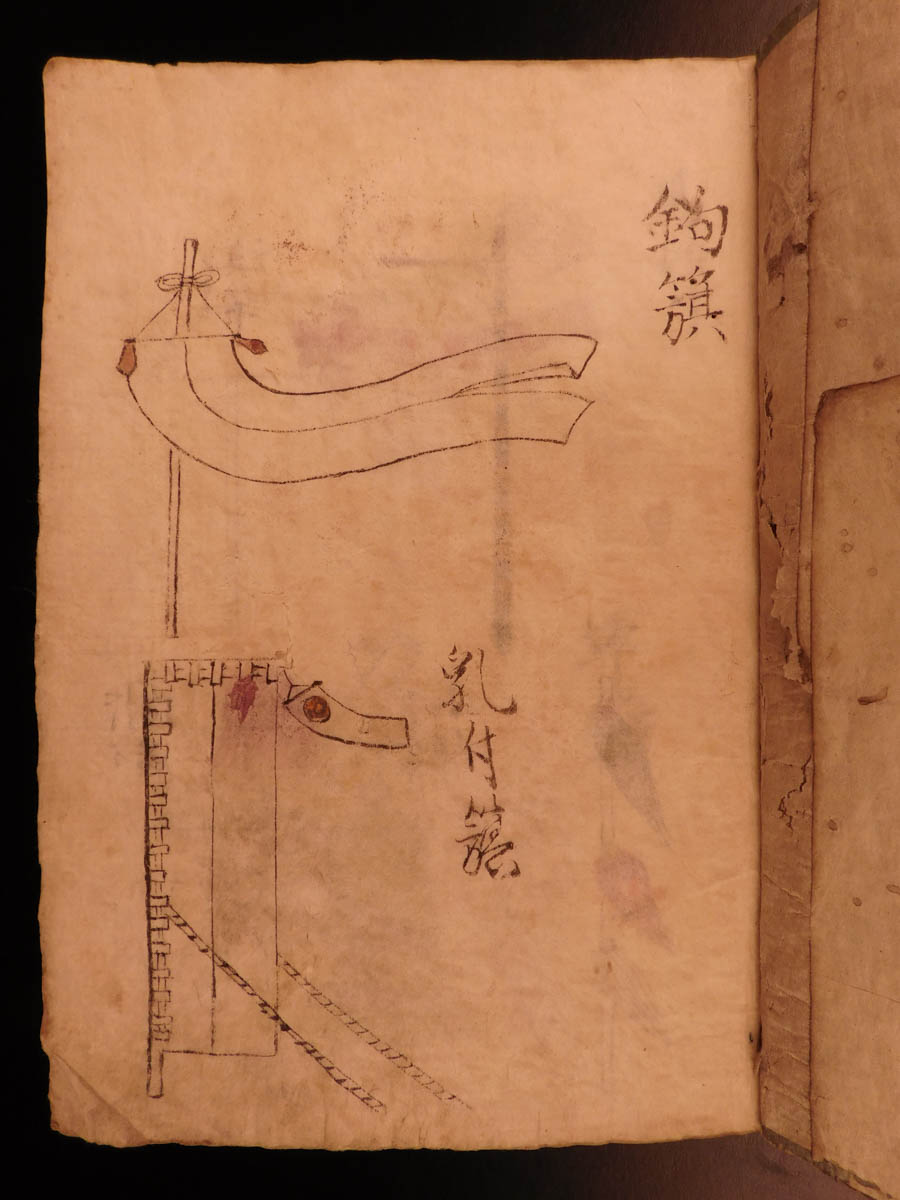 鈎籏
乳付籏